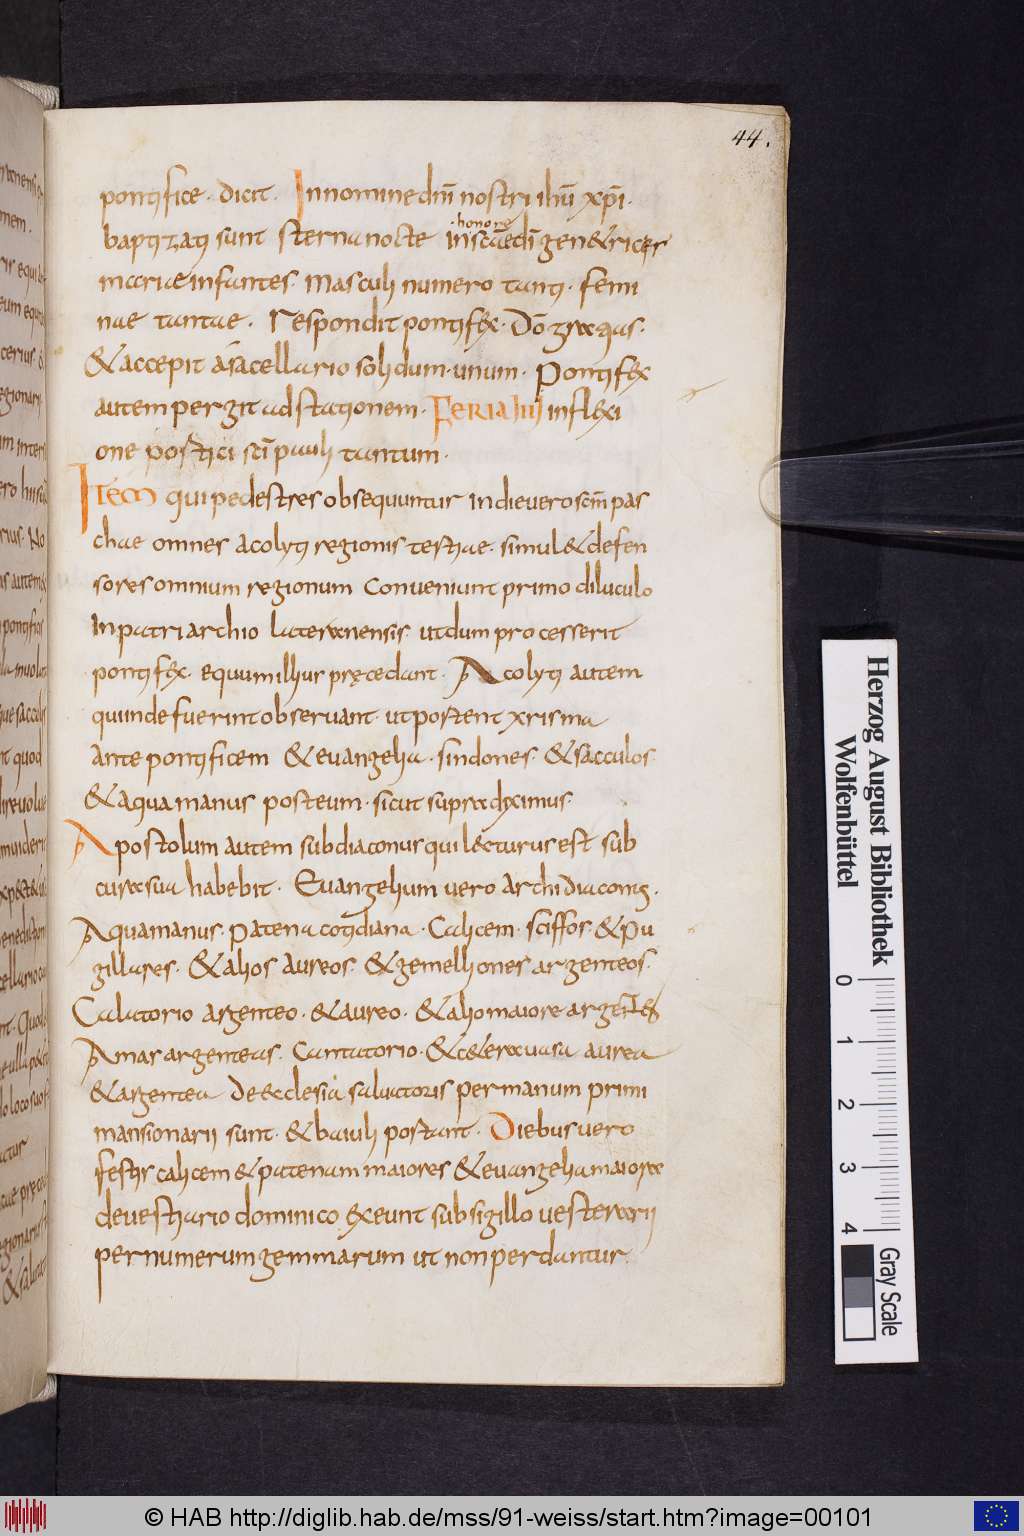 44.
pontifice · dicit · In nomine dni nostri ihu xpi ·
baptizati sunt sterna nocte in honore scae di genetricis
mariae infantes · masculi numero tanti · femi
nae tantae · respondit pontifex · Do gratias ·
& accepit a sacellario solidum · unum · Pontifex
autem pergit ad stationem · FERIA IIII in flexi
one portici sci pauli tantum ·
ITEM qui pedestres obsequuntur in die vero scm pas
chae omnes acolyti regionis tertiae · simul & defen
sores omnium regionum conveniunt primo diluculo
In patriarchio lateranensis · ut dum processerit
pontifex · equum illius pręcedant · Acolyti autem
qui inde fuerint observant · ut portent xrisma
ante pontificem & evangelia · sindones · & sacculos ·
& aquamanus post eum · sicut supra diximus ·
Apostolum autem subdiaconus qui lecturus est sub
cura sua habebit · Evangelium vero archidiaconus ·
Aquamanus · patena cotidiana · Calicem · sciffos · & pu
gillares · & alios aureos · & gemelliones argenteos ·
Colatorio argenteo · & aureo · & alio maiore argenteo
Amas argenteas · Cantatorio · & cetera vasa aurea
& argentea de ecclesia salvatoris per manum primi
mansionarii sunt · & baiuli portant · Diebus vero
festis calicem & patenam maiores & evangelia maiora
de vestiario dominico exeunt sub sigillo vesterarii
per numerum gemmarum ut non perdantur ·
Herzog August Bibliothek
Wolfenbüttel
0 1 2 3 4
Gray Scale
© HAB http://diglib.hab.de/mss/91-weiss/start.htm?image=00101